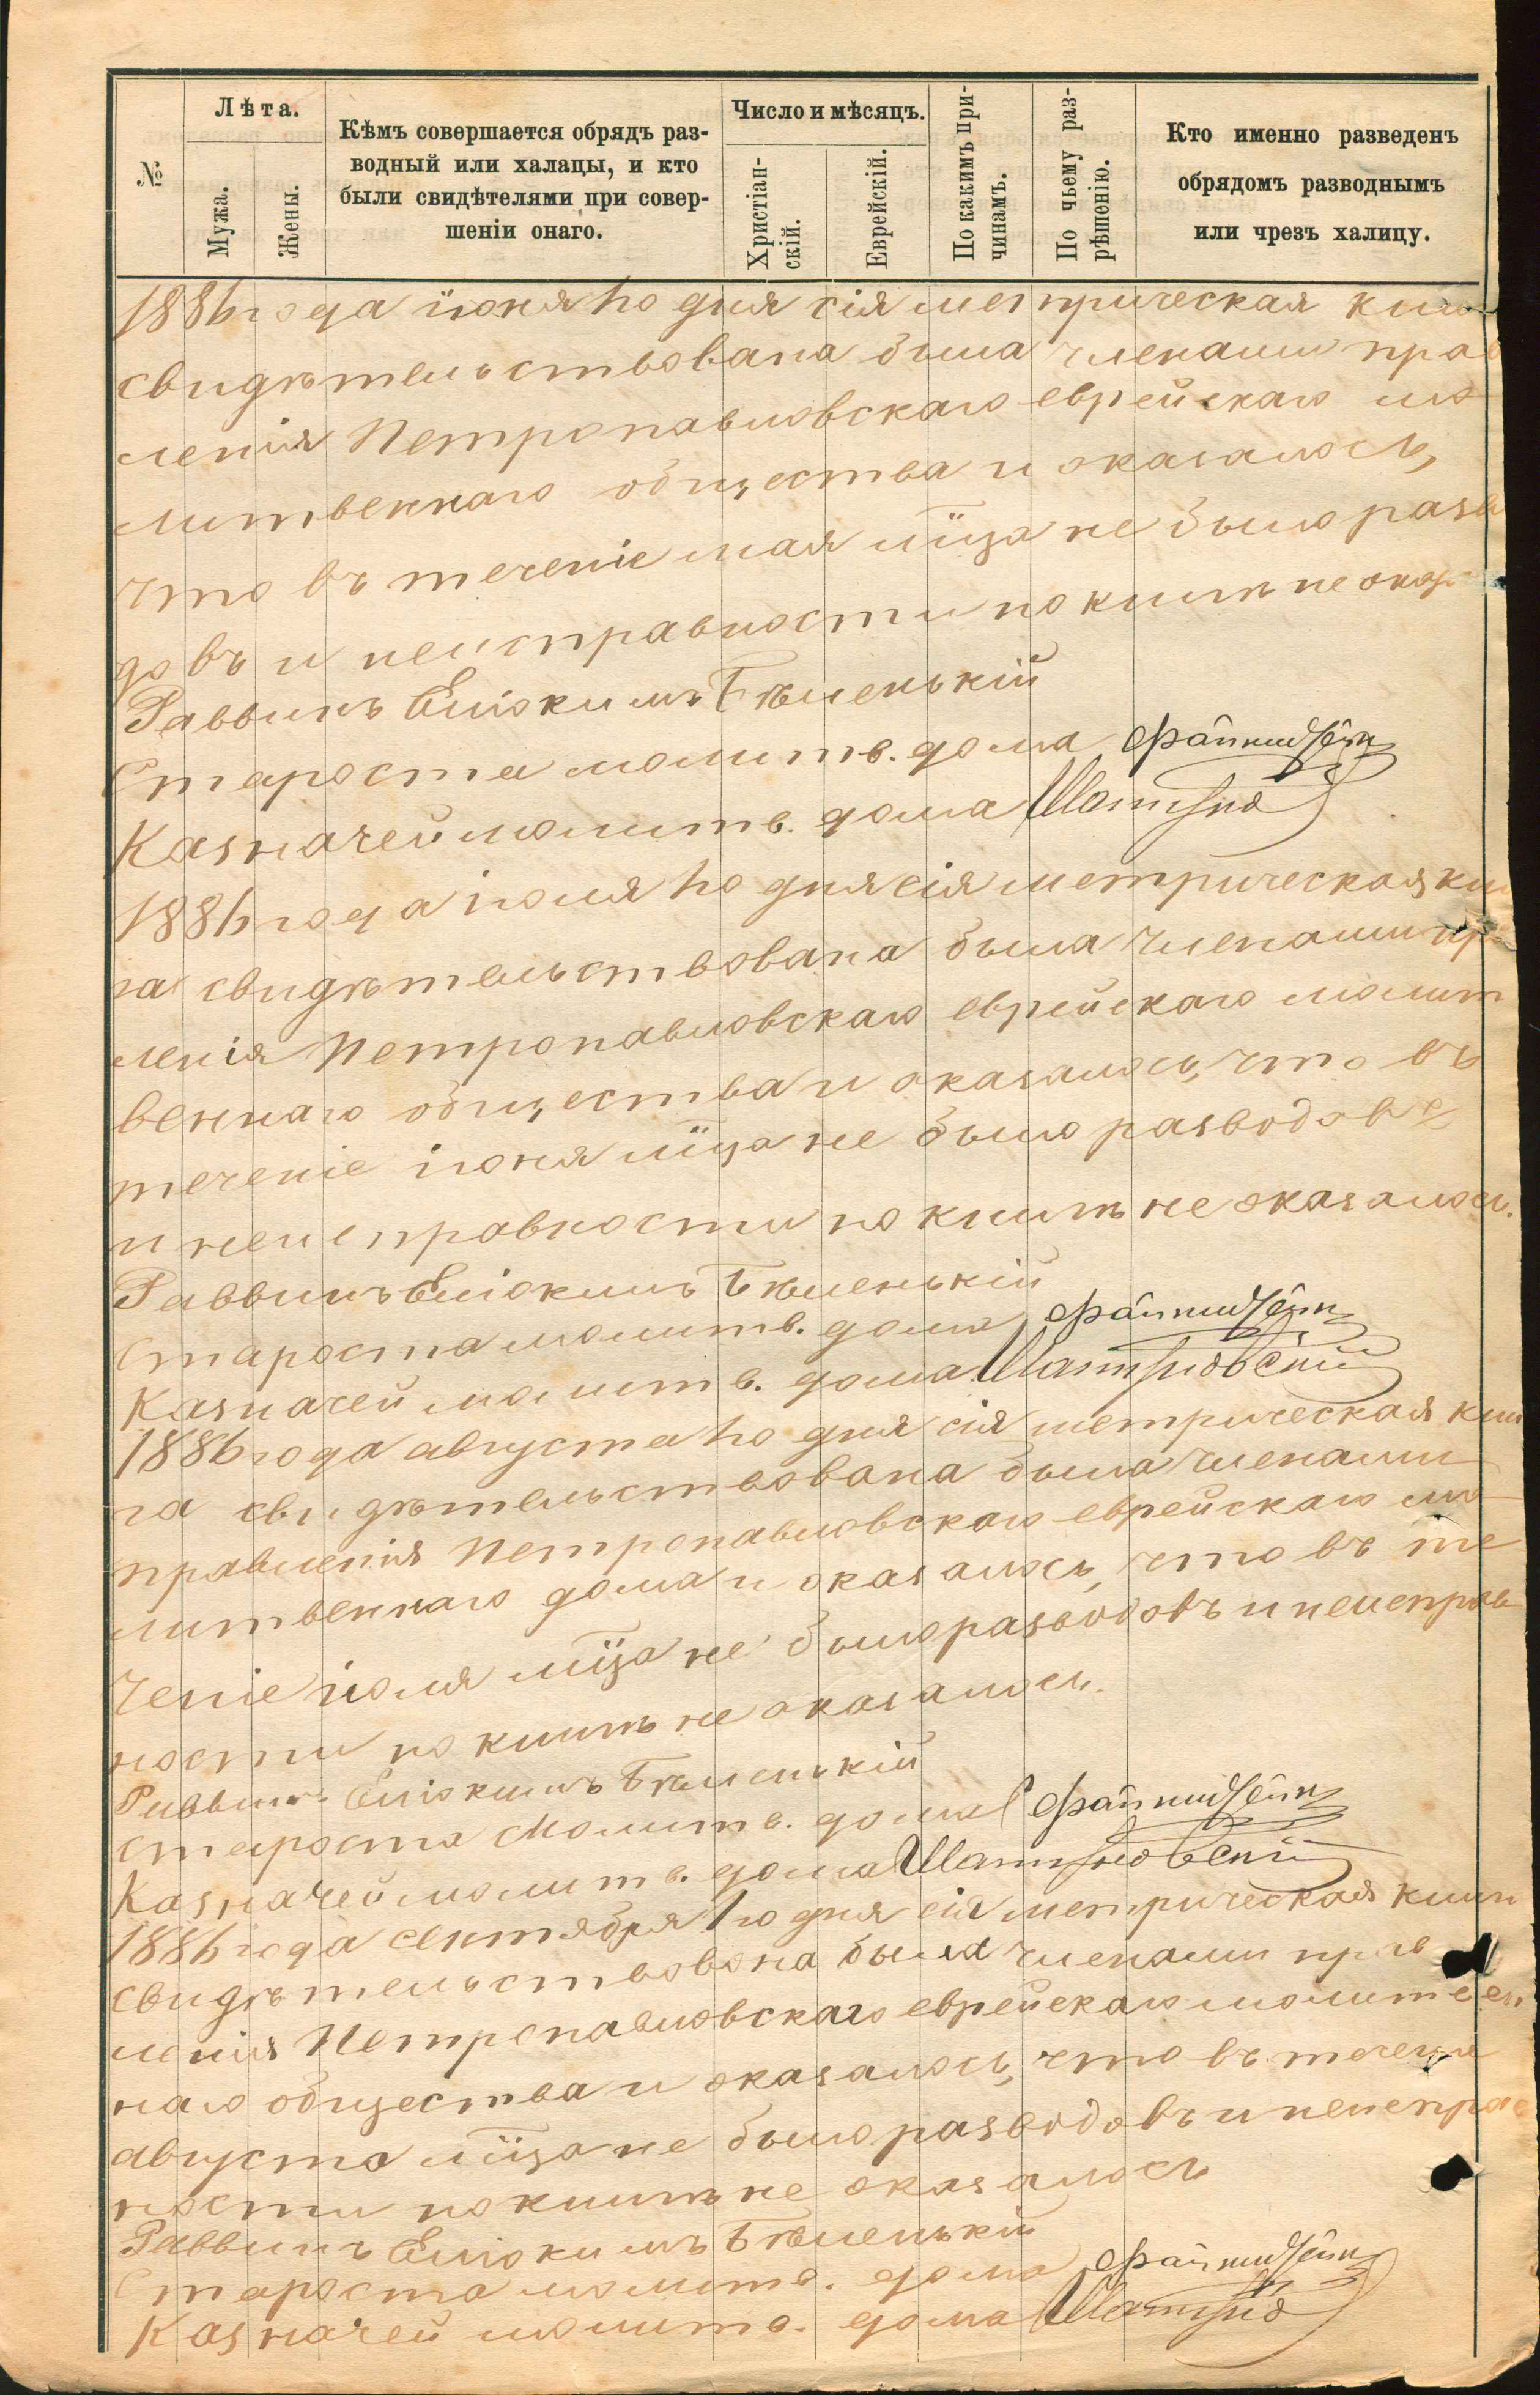 №
Лѣта.
Мужа.
Жены.
Кѣмъ совершается обрядъ раз-
водный или халацы, и кто
были свидѣтелями при совер-
шеніи онаго.
Число и мѣсяцъ.
Христіан-
скій.
Еврейскій.
По какимъ при-
чинамъ.
По чьему раз-
рѣшенію.
Кто именно разведенъ
обрядомъ разводнымъ
или чрезъ халицу.
1886 года іюня 1го дня сія метрическая
свидѣтельствована была членами прав
ленія Петропавловскаго еврейскаго мо
литвеннаго общества и оказалось,
что въ теченіе мая мѣца не было разво
довъ и неисправности по книгѣ не оказ
Раввинъ Еліокимъ Бѣленькій
Староста молитв. дома
Казначей молитв. дома
1886 года іюля 1го дня сія метрическая кни
га свидѣтельствована была членами пра
ленія Петропавловскаго еврейскаго молит
веннаго общества и оказалось, что въ
теченіе іюня мѣца не было разводовъ
и неисправности по книгѣ не оказалось.
Раввинъ Еліокимъ Бѣленькій
Староста молитв. дома
Казначей молитв. дома
1886 года августа 1го дня сія метрическая кни
га свидѣтельствована была членами
правленія Петропавловскаго еврейскаго мо
литвеннаго дома и оказалось, что въ те
ченіе іюля мѣца не было разводовъ и неисправ
ности по книгѣ не оказалось.
Раввинъ Еліокимъ Бѣленькій
Староста Молитв. дома
Казначей молитв. дома
1886 года сентября 1го дня сія метрическая книг
свидѣтельствована была членами прав
ленія Петропавловскаго еврейскаго молитвен
наго общества и оказалось, что въ теченіе
августа мѣца не было разводовъ и неисправ
ности по книгѣ не оказалось
Раввинъ Еліокимъ Бѣленькій
Староста молитв. дома
Казначей молитв. дома